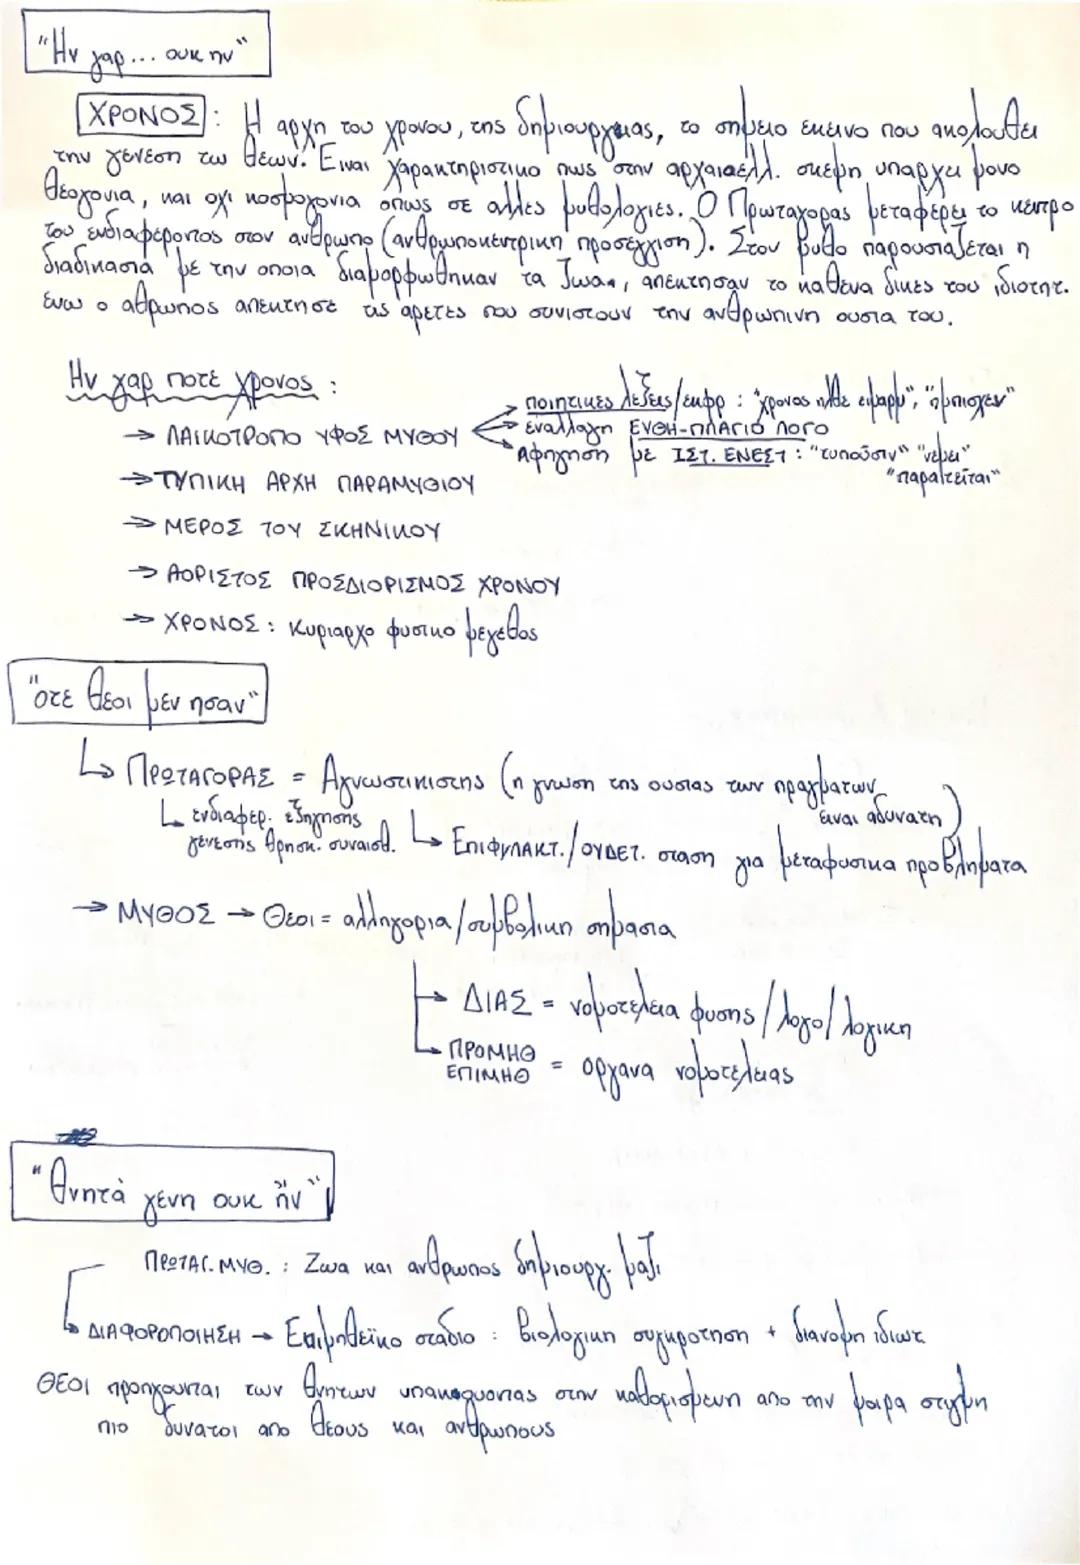 "Ην γαρ... ουκ ην"
ΧΡΟΝΟΣ: Η αρχη του χρονου, της δημιουργειας, το σημειο εκεινο που ακολουθει
την γενεση τω θεων. Ειναι χαρακτηριστικο πως στην αρχαιαελλ. σκεψη υπαρχει μονο
θεογονια, και οχι κοσμογονια οπως σε αλλες μυθολογιες. Ο Πρωταγορας μεταφερει το κεντρο
του ενδιαφεροντος στον ανθρωπο (ανθρωποκεντρικη προσεγγιση). Στον μυθο παρουσιαζεται η
διαδικασια με την οποια διαμορφωθηκαν τα ζωα, απεκτησαν το καθενα δικες του ιδιοτητ.
ενω ο αθρωπος απεκτησε τις αρετες που συνιστουν την ανθρωπινη ουσια του.
Ην γαρ ποτε χρονος :
→ ΛΑΙΚΟΤΡΟΠΟ ΥΦΟΣ ΜΥΘΟΥ
→ ποιητικες λεξεις/εκφρ : "χρονος ηλθε ειμαρμ", "ημπισχεν"
→ εναλλαγη ΕΥΘΗ-ΠΛΑΓΙΟ ΛΟΓΟ
→ Αφηγηση με ΙΣΤ. ΕΝΕΣΤ : "τυπούσιν" "νεμει"
"παραιτείται"
→ ΤΥΠΙΚΗ ΑΡΧΗ ΠΑΡΑΜΥΘΙΟΥ
→ ΜΕΡΟΣ ΤΟΥ ΣΚΗΝΙΚΟΥ
→ ΑΟΡΙΣΤΟΣ ΠΡΟΣΔΙΟΡΙΣΜΟΣ ΧΡΟΝΟΥ
→ ΧΡΟΝΟΣ : Κυριαρχο φυσικο μεγεθος
"οτε θεοι μεν ησαν"
↳ ΠΡΩΤΑΓΟΡΑΣ = Αγνωστικιστης (η γνωση της ουσιας των πραγματων
ειναι αδυνατη)
↳ ενδιαφερ. εξηγησης
γενεσης θρησκ. συναισθ.
↳ ΕΠΙΦΥΛΑΚΤ./ΟΥΔΕΤ. σταση για μεταφυσικα προβληματα
→ ΜΥΘΟΣ → Θεοι = αλληγορια/συμβολικη σημασια
→ ΔΙΑΣ = νομοτελεια φυσης/λογο/λογικη
→ ΠΡΟΜΗΘ
ΕΠΙΜΗΘ = οργανα νομοτελειας
"θνητὰ γενη ουκ ἦν"
ΠΡΩΤΑΓ. ΜΥΘ. : Ζωα και ανθρωπος δημιουργ. μαζι
↳ ΔΙΑΦΟΡΟΠΟΙΗΣΗ → Επιμηθεϊκο σταδιο : βιολογικη συγκροτηση + διανομη ιδιωτ
ΘΕΟΙ προηγουνται των θνητων υπακουοντας στην καθορισμενη απο την μοιρα στιγμη
πιο δυνατοι απο θεους και ανθρωπους